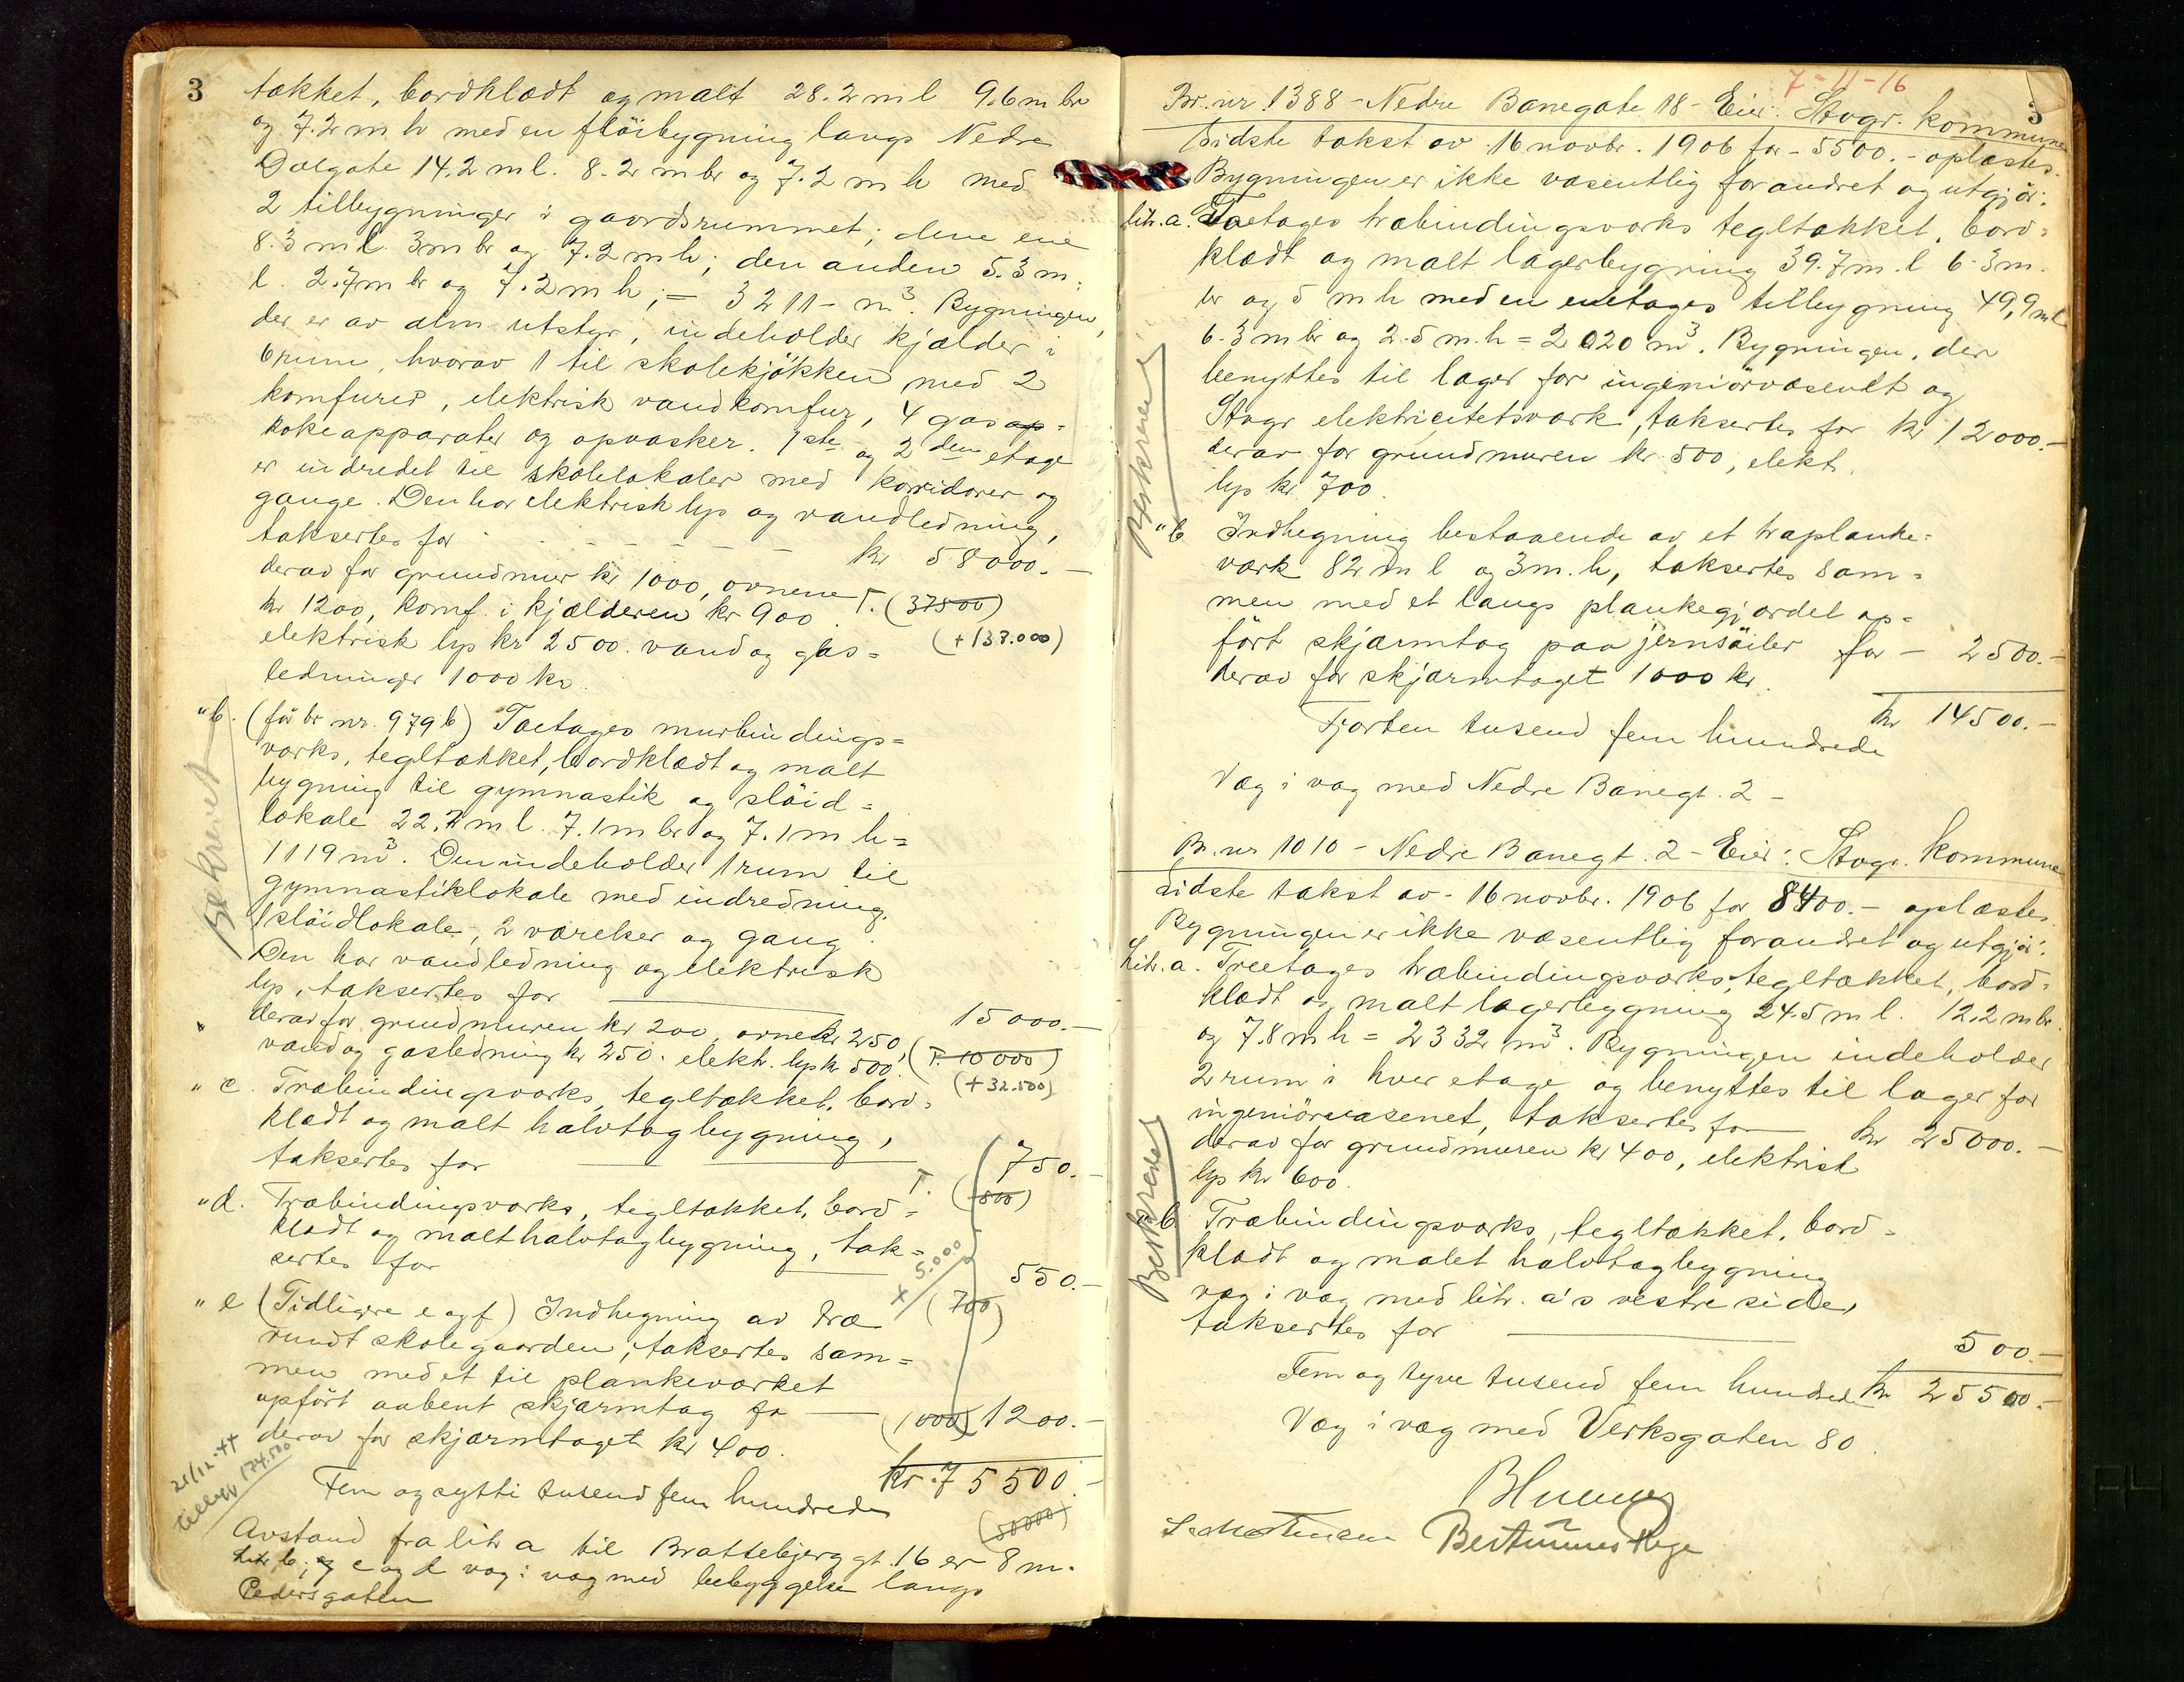 3
tækket, bordklædt og malt 28.2 m l 9.6 m br
og 7.2 m h med en flöibygning langs Nedre
Dalgate 14.2 m l. 8.2 m br og 7.2 m h med
2 tilbygninger i gaardsrummet; dene ene
8.3 m l. 3 m br og 7.2 m h; den anden 5.3 m.
l. 2.7 m br og 7.2 m h; – 3211 – m³. Bygningen,
der er av alm utstyr, indeholder kjælder i
6 rum, hvorav 1 til skolekjökken med 2
komfurer, elektrisk vandkomfur, 4 gas ap-
kokeapparater og opvasker. 1ste og 2den etage
er indredet til skolelokaler med korridorer og
gange. Den har elektrisk lys og vandledning,
taksertes for kr 58000.–
derav for grundmur kr 1000, ovnene T. (37500)
kr 1200, komf. i kjælderen kr 900 (+137.000)
elektrisk lys kr 2500. vand og gas=
ledninger 1000 kr.
"b. (för br nr. 979 b) Toetages murbindings=
værks, tegltækket, bordklædt og malt
bygning til gymnastik og slöid=
lokale 22.2 m l. 7.1 m br og 7.1 m h=
1119 m³. Den indeholder 1 rum til
gymnastiklokale med indredning.
1 slöidlokale, 2 værelser og gang.
Den har vandledning og elektrisk
lys, taksertes for 15000.–
derav for grundmuren kr 200, ovne kr 250,
vand og gasledning kr 250. elekt. lys kr 500. (T. 10000)
(+32.500)
" c. Træbindingsværks, tegltækket, bord=
klædt og malt halvtagbygning,
taksertes for 750.–
T. (800)
"d. Træbindingsværks, tegltækket, bord=
klædt og malt halvtagbygning, tak=
sertes for 550.–
(700)
+ 5.000
" e (Tidligere e og f) Indhegning av træ
rundt skolegaarden, taksertes sam=
men med et til plankeværket
opfört aabent skjærmtag fo (1000) 1200.–
derav for skjærmtaget kr 400.
kr. 75500.–
Fem og sytti tusend fem hundrede
(50000)
21/12-44
tillegg 174.500
Avstand fra litr a til Brattebjerggt. 16 er 8 m.
Litr b, og c og d væg i væg med bebyggelse langs
Pedersgaten
Beskrevet
7-11-16
3
Br. nr 1388 – Nedre Banegate 18 – Eier: Stvgr. kommune
Sidste takst av 16 novbr. 1906 for – 5500.– oplæstes.
Bygningen er ikke væsentlig forandret og utgjör:
litr. a. Toetages træbindingsværks tegltækket, bord=
klædt og malt lagerbygning 39.7 m. l 6.3 m.
br og 5 m h med en enetages tilbygning 49,9 m l
6.3 m br og 2.5 m. h = 2020 m³. Bygningen, der
benyttes til lager for ingeniörvæsendt og
Stvgr elektricitetsværk, taksertes for kr 12000.–
derav for grundmuren kr. 500, elekt.
lys kr 700.
"b Indhegning bestaaende av et træplanke=
værk 82 m l og 3 m. h, taksertes sam=
men med et langs plankegjærdet op=
fört skjærmtag paa jernsöiler for – 2500.–
derav for skjærmtaget 1000 kr.
kr 14500.–
Fjorten tusend fem hundrede
Væg i væg med Nedre Banegt. 2 –
Beskrevet
Br. nr 1010 – Nedre Banegt. 2 – Eier: Stvgr. kommune
Sidste takst av 16 novbr. 1906 for 8400.– oplæstes.
Bygningen er ikke væsentlig forandret og utgjör:
Litr. a. Treetages træbindingsværks, tegltækket, bord=
klædt og malt lagerbygning 24.5 m l. 12.2 m br.
og 7.8 m h = 2332 m³. Bygningen indeholder
2 rum i hver etage og benyttes til lager for
ingeniörvæsenet, taksertes for kr 25000.–
derav for grundmuren kr 400, elektrisk
lys kr 600.
"b Træbindingsværks, tegltækket, bord=
klædt og malet halvtagbygning
væg i væg med litr. a's vestre side,
taksertes for 500.–
Fem og tyve tusend fem hundrede kr 25500.–
Væg i væg med Verksgaten 80.
Beskrevet